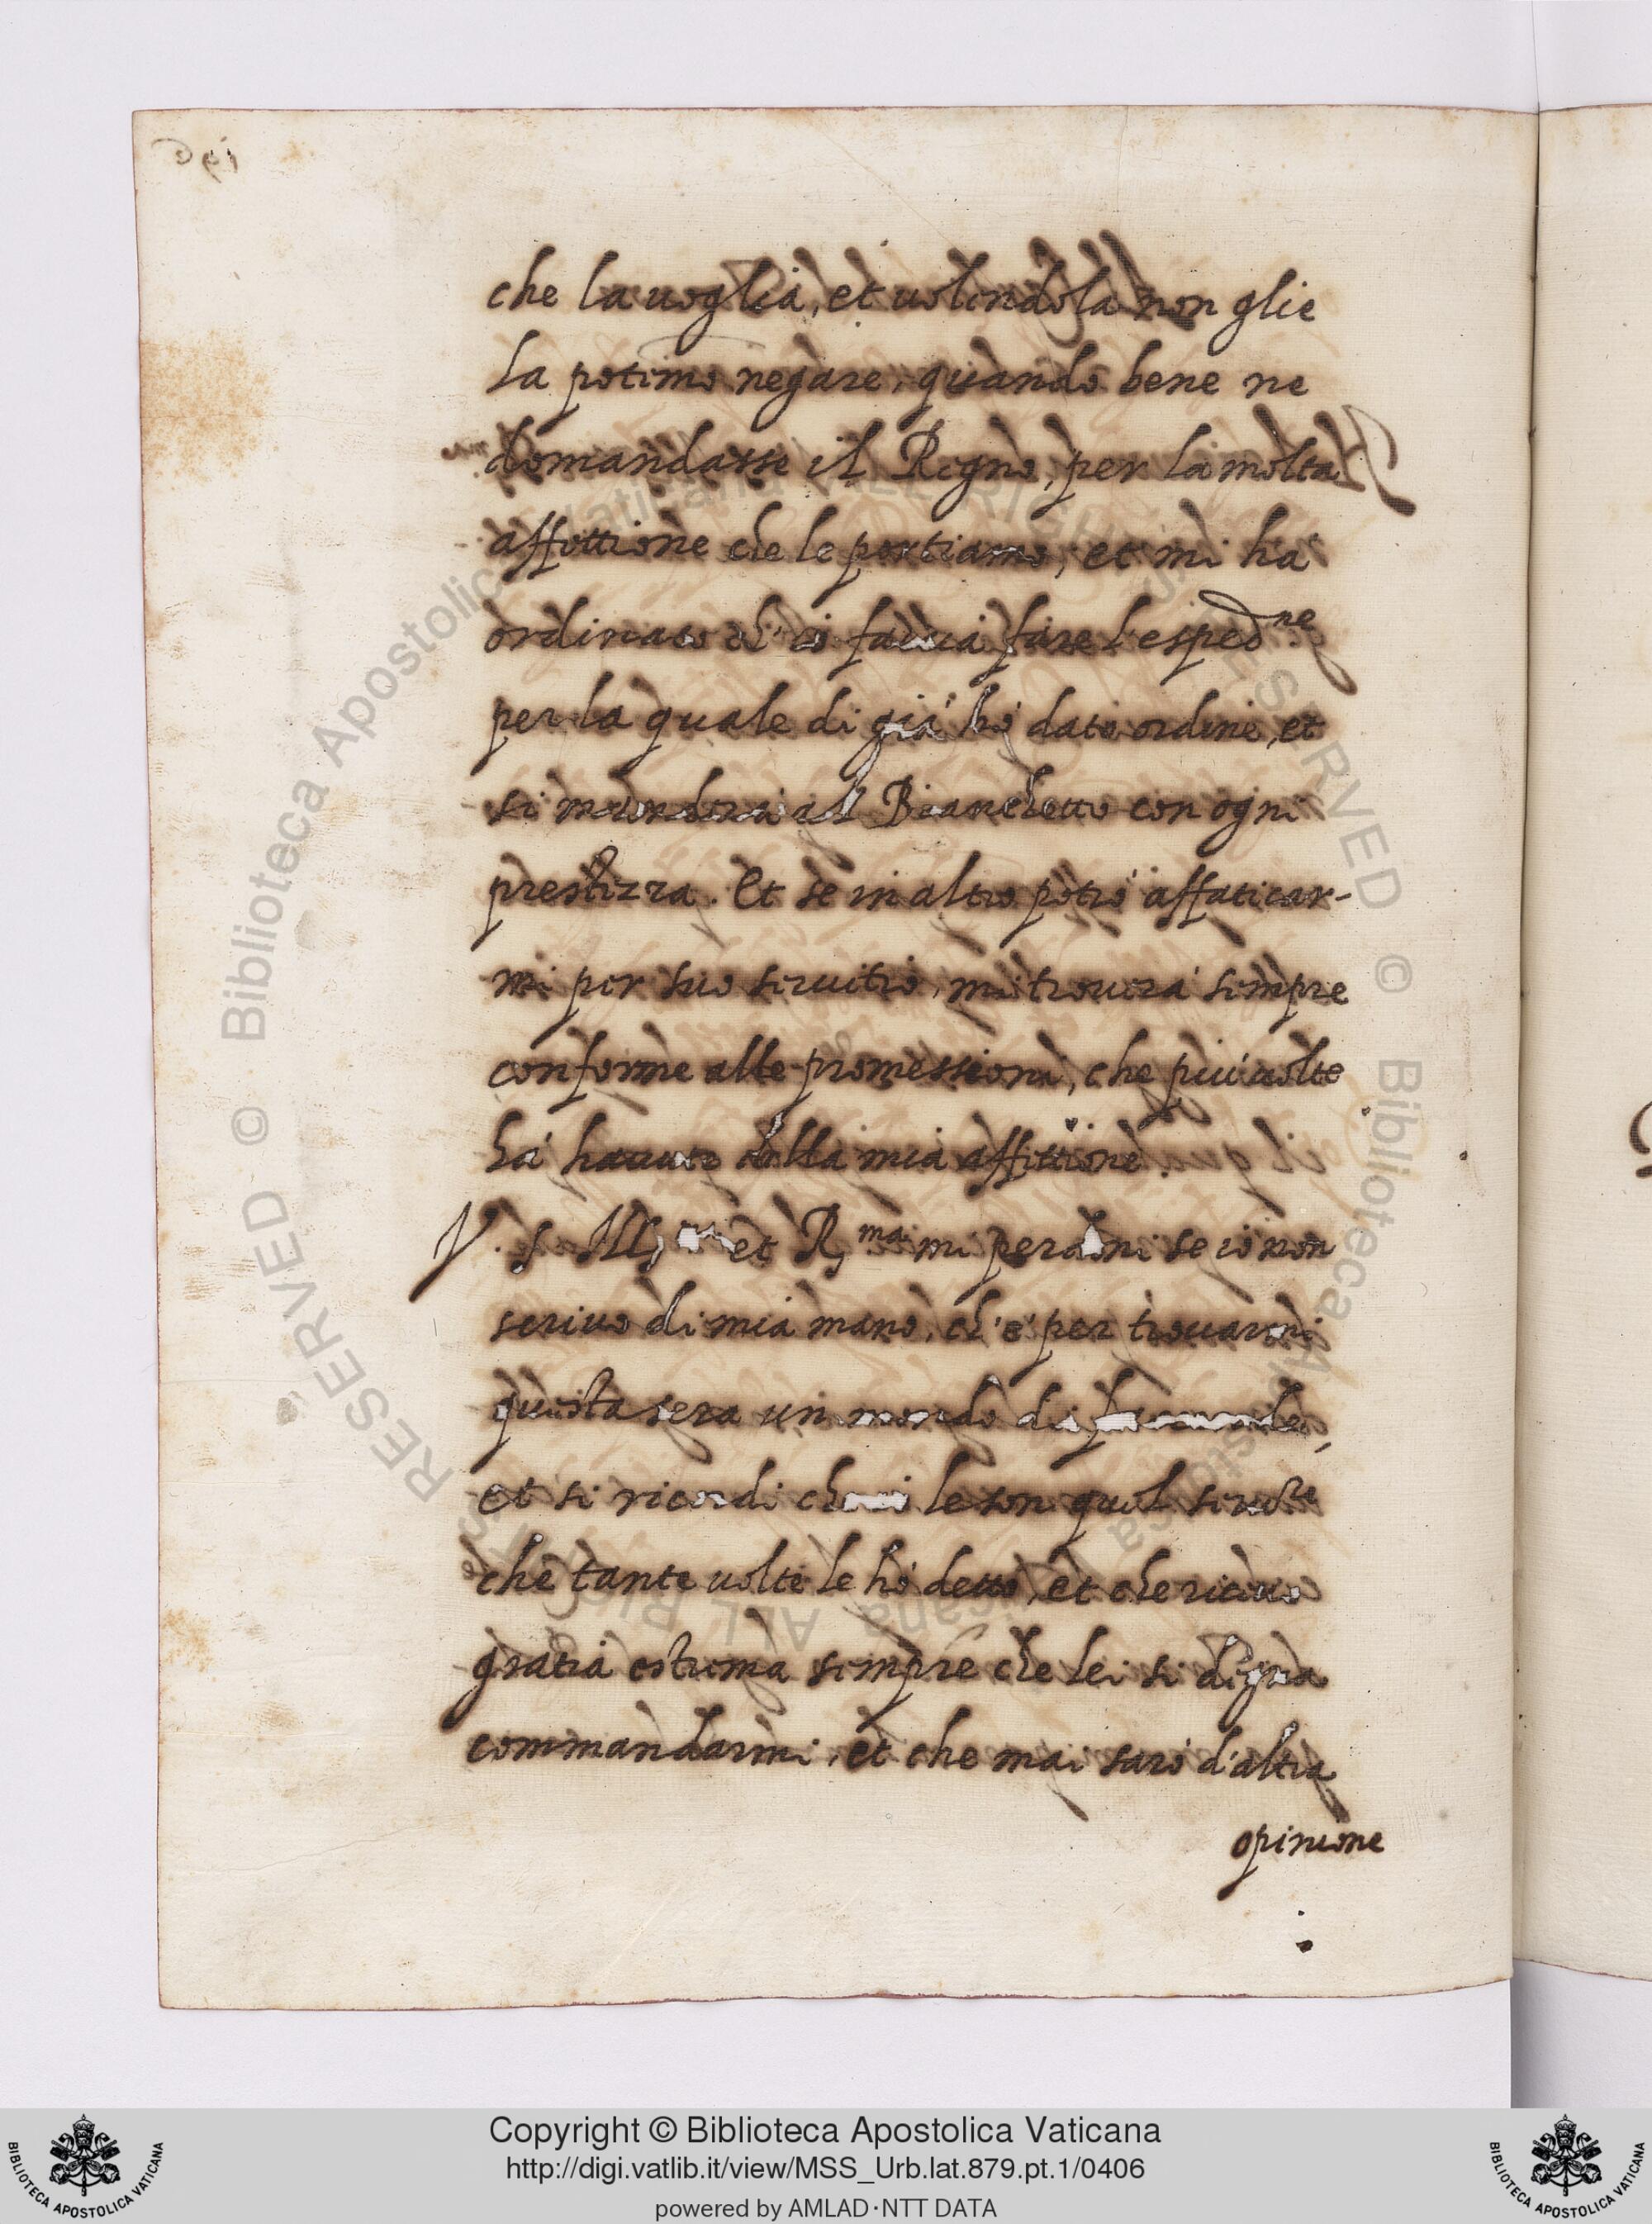 che la uoglia, et uolendola non glie
la potemo negare, quando bene ne
domandasse il Regno, per la molta
affettione che le portiamo, et mi ha
ordinato ch'io faccia fare l'esped.ne
per la quale di già hò dato ordine, et
si manderà al Bianchetto con ogni
prestezza. Et se in altro potrò affaticar-
mi per suo seruitio, mi trouerà sempre
conforme alle promessioni, che più uolte
hà hauuto della mia affettione.
V. S. Ill. et R.ma mi perdoni se io non
scriuo di mia mano, ch'è per trouarmi
questa sera un mondo di facende,
et si ricordi ch'io le son quel seruore
che tante uolte le hò detto, et che riceuo
gratia estrema sempre che lei si degna
commandarmi, et che mai sarò d'altra
opinione
Copyright © Biblioteca Apostolica Vaticana
http://digi.vatlib.it/view/MSS_Urb.lat.879.pt.1/0406
powered by AMLAD·NTT DATA
BIBLIOTECA APOSTOLICA VATICANA
BIBLIOTECA APOSTOLICA VATICANA